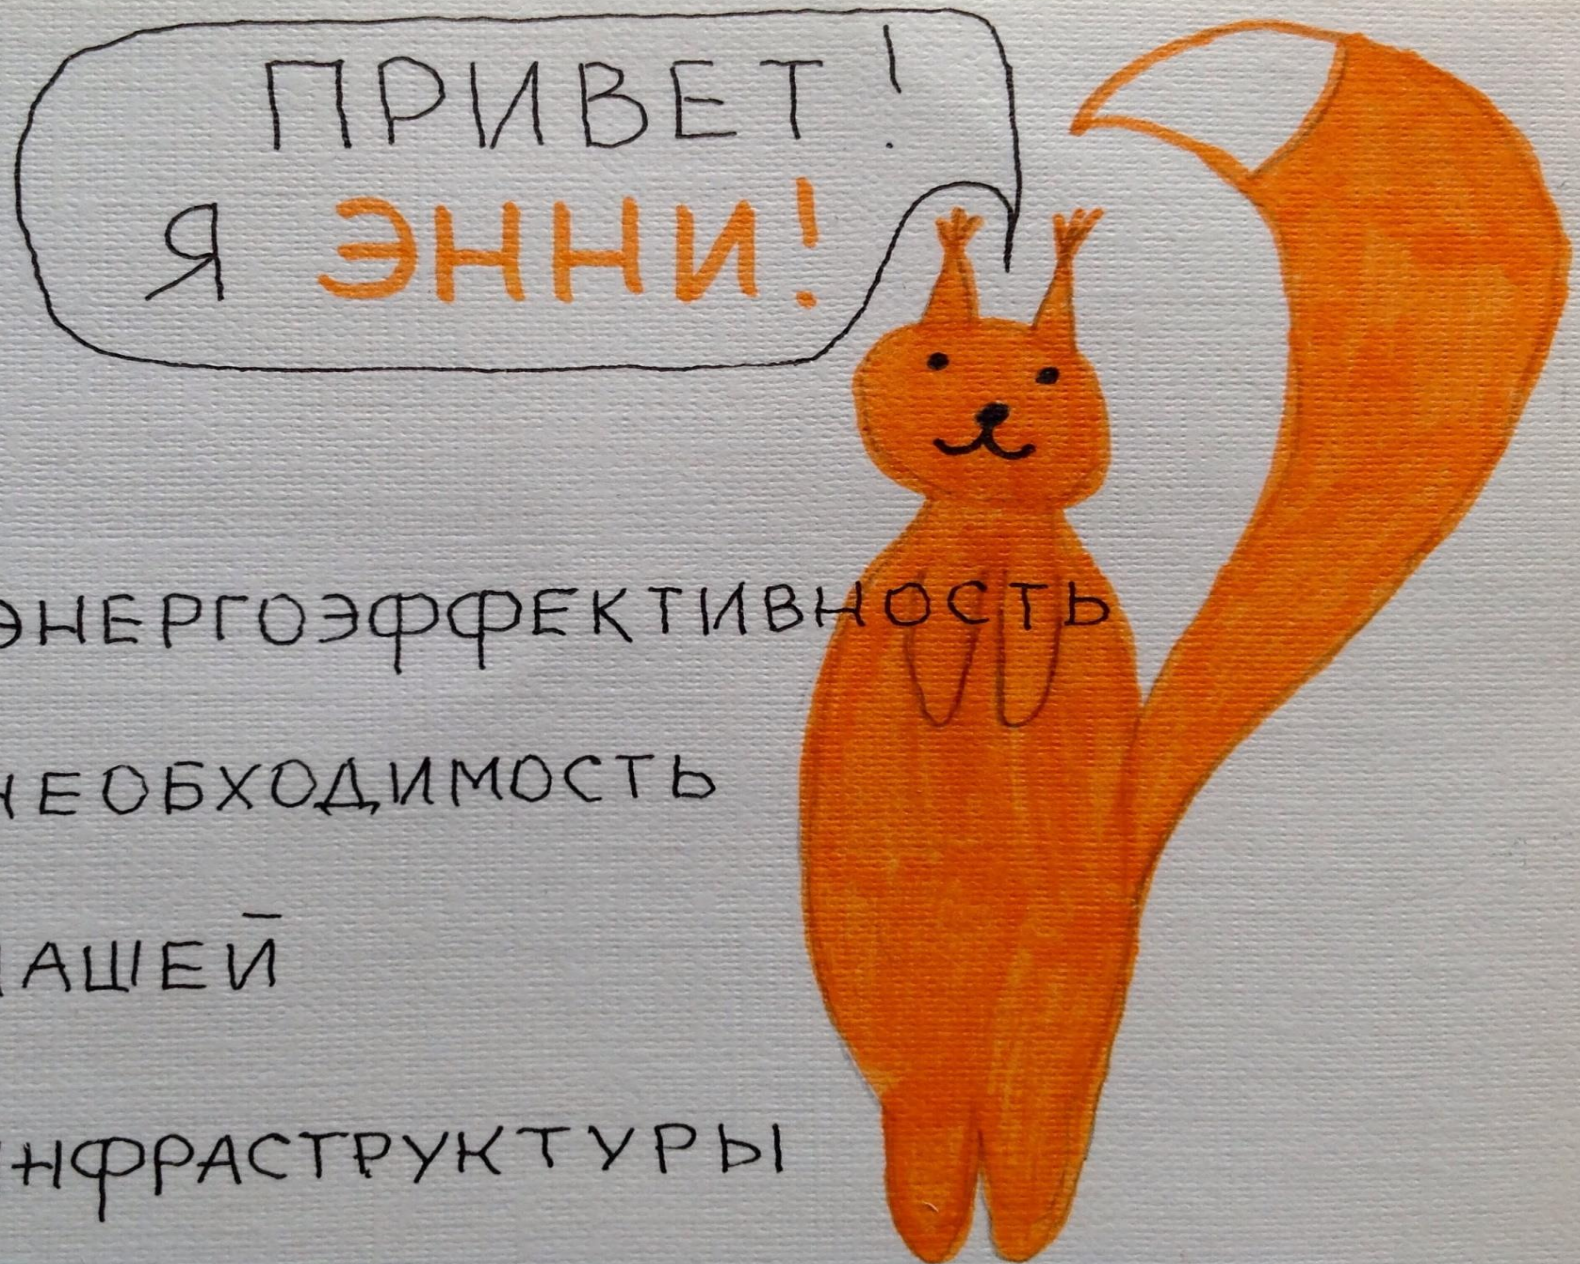 ПРИВЕТ!
Я ЭННИ!
ЭНЕРГОЭФФЕКТИВНОСТЬ
НЕОБХОДИМОСТЬ
НАШЕЙ
ИНФРАСТРУКТУРЫ